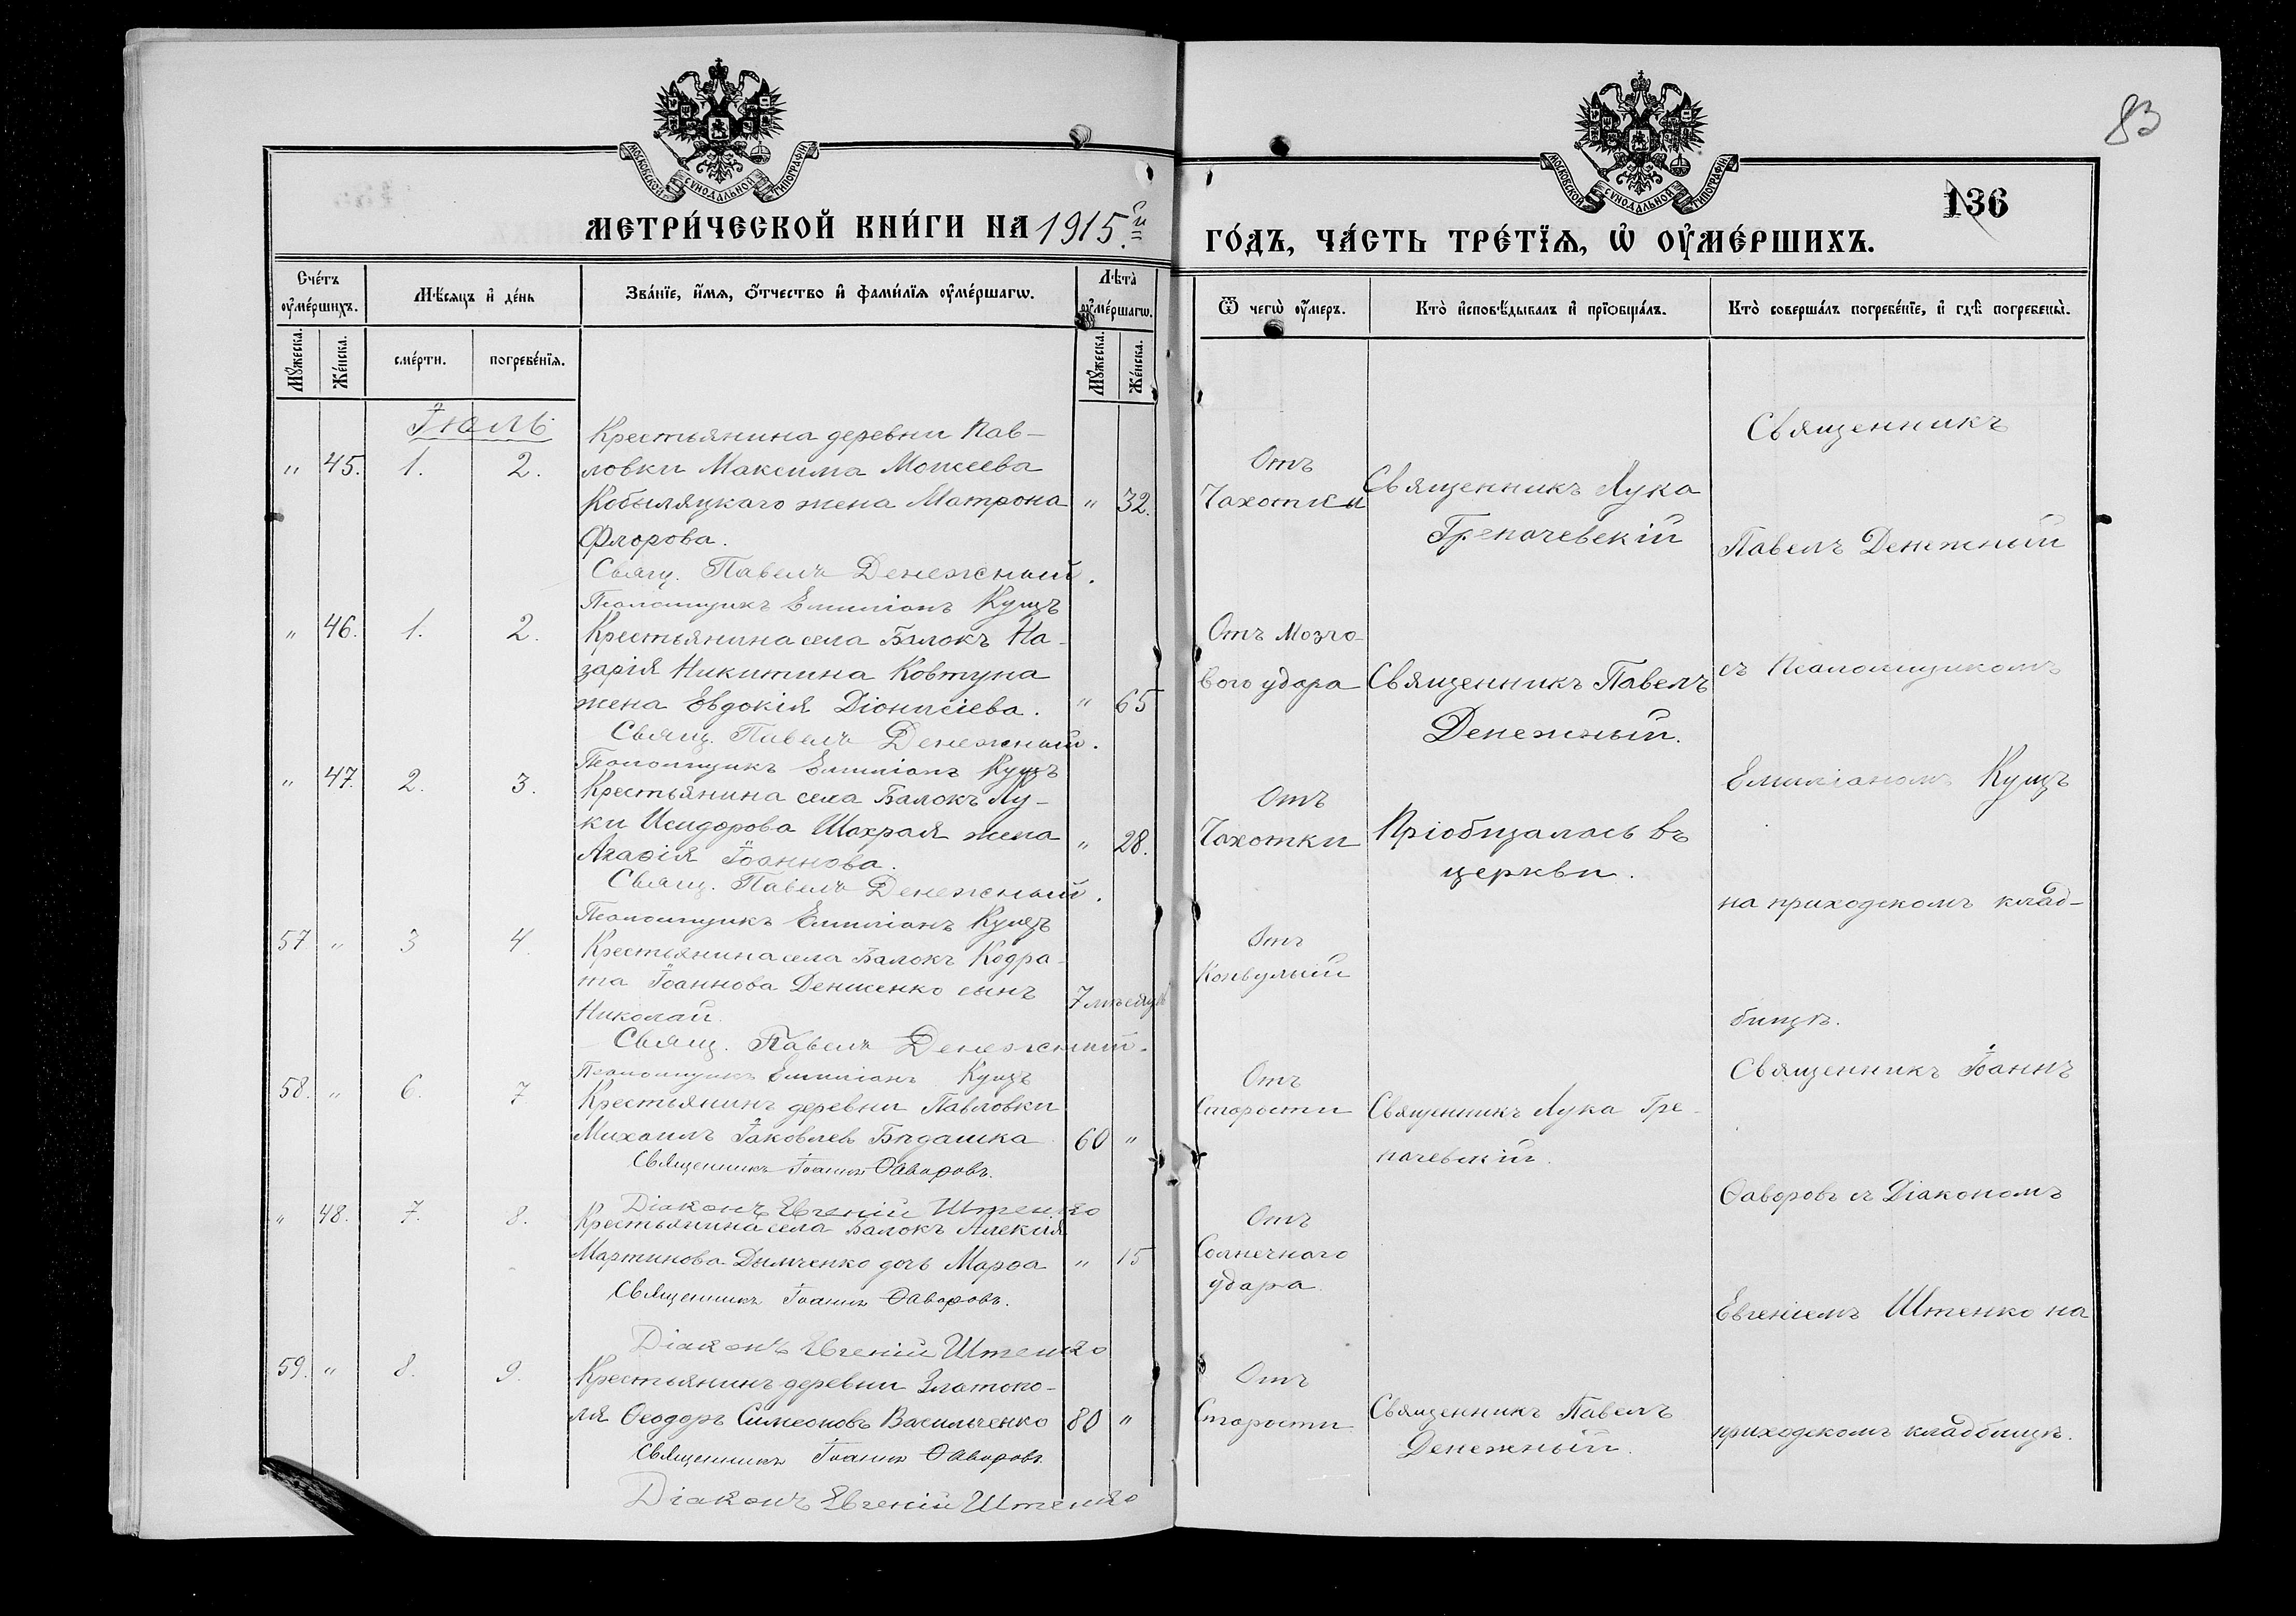 83
136
МОСКОВСКОЙ СѴНОДАЛЬНОЙ ТИПОГРАФІИ
МОСКОВСКОЙ СѴНОДАЛЬНОЙ ТИПОГРАФІИ
МЕТРИ́ЧЕСКОЙ КНИ́ГИ НА 1915.й
ГО́ДЪ, ЧА́СТЬ ТРЕ́ТЇѦ, Ѡ҆ ОУ҆МЕ́РШИХЪ.
Сче́тъ оу҆ме́ршихъ.
Мѣ́сѧцъ и҆ де́нь
Зва́нїе, и҆́мѧ, ѻ҆́тчество и҆ фами́лїѧ оу҆ме́ршагѡ.
Лѣ́та оу҆ме́ршагѡ.
Ѿ чегѡ̀ оу҆́меръ.
Кто̀ и҆сповѣ́дывалъ и҆ прїѡбща́лъ.
Кто̀ соверша́лъ погребе́нїе, и҆ гдѣ̀ погребены̀.
Мꙋ́жеска.
Же́нска.
сме́рти.
погребе́нїѧ.
Мꙋ́жеска.
Же́нска.
Іюль
" 45. 1. 2.
Крестьянина деревни Пав-
ловки Максима Моисеева
Кобыляцкаго жена Матрона " 32.
Флорова.
Свящ. Павелъ Денежный.
Псаломщикъ Емиліанъ Кущъ
Отъ
Чахотки
Священникъ Лука
Грепачевскій
Священникъ
Павелъ Денежный
" 46. 1. 2.
Крестьянина села Балокъ На-
зарія Никитина Ковтуна
жена Евдокія Діонисіева. " 65
Свящ. Павелъ Денежный.
Псаломщикъ Емиліанъ Кущъ
Отъ Мозго-
вого удара
Священникъ Павелъ
Денежный.
съ Псаломщикомъ
" 47. 2. 3.
Крестьянина села Балокъ Лу-
ки Исидорова Шахрая жена
Агаѳія Іоаннова. " 28.
Свящ. Павелъ Денежный.
Псаломщикъ Емиліанъ Кущъ
Отъ
Чахотки
Пріобщалась въ
церкви.
Емиліаномъ Кущъ
на приходскомъ клад-
57 " 3 4.
Крестьянина села Балокъ Кодра-
та Іоаннова Денисенко сынъ
Николай. 7 мѣсяцъ
Свящ. Павелъ Денежный.
Псаломщикъ Емиліанъ Кущъ
Отъ
Конвульсій
бищѣ.
58. " 6. 7
Крестьянинъ деревни Павловки
Михаилъ Іаковлев Бѣдашка 60 "
Священникъ Іоаннъ Ѳаворовъ.
Діаконъ Евгеній Штенко
Отъ
Старости
Священникъ Лука Гре-
пачевскій.
Священникъ Іоаннъ
Ѳаворовъ съ Діакономъ
" 48. 7. 8.
Крестьянина села Балокъ Алексія
Мартинова Дымченко дочь Марѳа " 15
Священникъ Іоаннъ Ѳаворовъ.
Діаконъ Евгеній Штенко
Отъ
Солнечнаго
удара
Евгеніемъ Штенко на
59. " 8. 9.
Крестьянинъ деревни Златопо-
ля Ѳеодоръ Симеоновъ Васильченко 80 "
Священникъ Іоаннъ Ѳаворовъ
Діаконъ Евгеній Штенко
Отъ
Старости
Священникъ Павелъ
Денежный.
приходскомъ кладбищѣ.